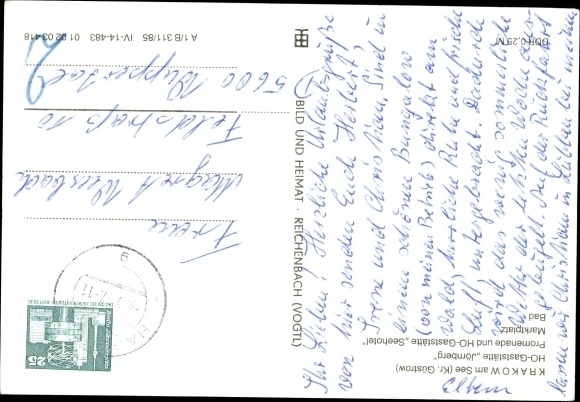 KRAKOW am See (Kr. Güstrow)
HO-Gaststätte „Jörnberg“
Promenade und HO-Gaststätte „Seehotel“
Marktplatz
Bad
DDR 0,25 M
BILD UND HEIMAT · REICHENBACH (VOGTL)
A 1/B 311/85 IV-14-483 01 02 03 418
25
DEUTSCHE DEMOKRATISCHE REPUBLIK
Frau
Margret
Feldstraße 10
5600 Wuppertal 2
Ihr Lieben! Herzliche Urlaubsgrüße
von hier senden Euch Herbert,
Irene und Christian. Sind in
einem schönen Bungalow
(von meinem Betrieb) direkt am
Wald, herrliche Ruhe und frische
Luft, untergebracht. Dadurch
wird das wenig sommerliche
Wetter der letzten Wochen aus-
Auf der Rückfahrt
lassen wir Christian in bei meinen
Eltern